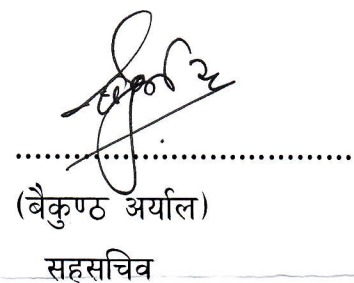 (बैकुण्ठ अर्याल)
सहसचिव